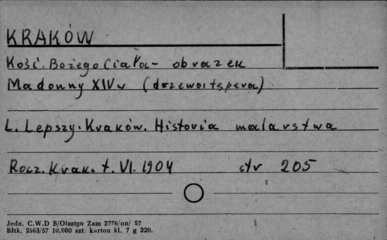 KRAKÓW
Kość. Bożego Ciała - obrazek
Madonny XIV w (drzewoitspera)
L. Lepszy. Kraków. Historia malarstwa
Rocz. Krak. t. VI. 1904 str 205
Jedn. C.W.D B/Olsztyn Zam 2776/on/ 57
Bltk. 2563/57 10.000 szt. karton kl. 7 g 220.